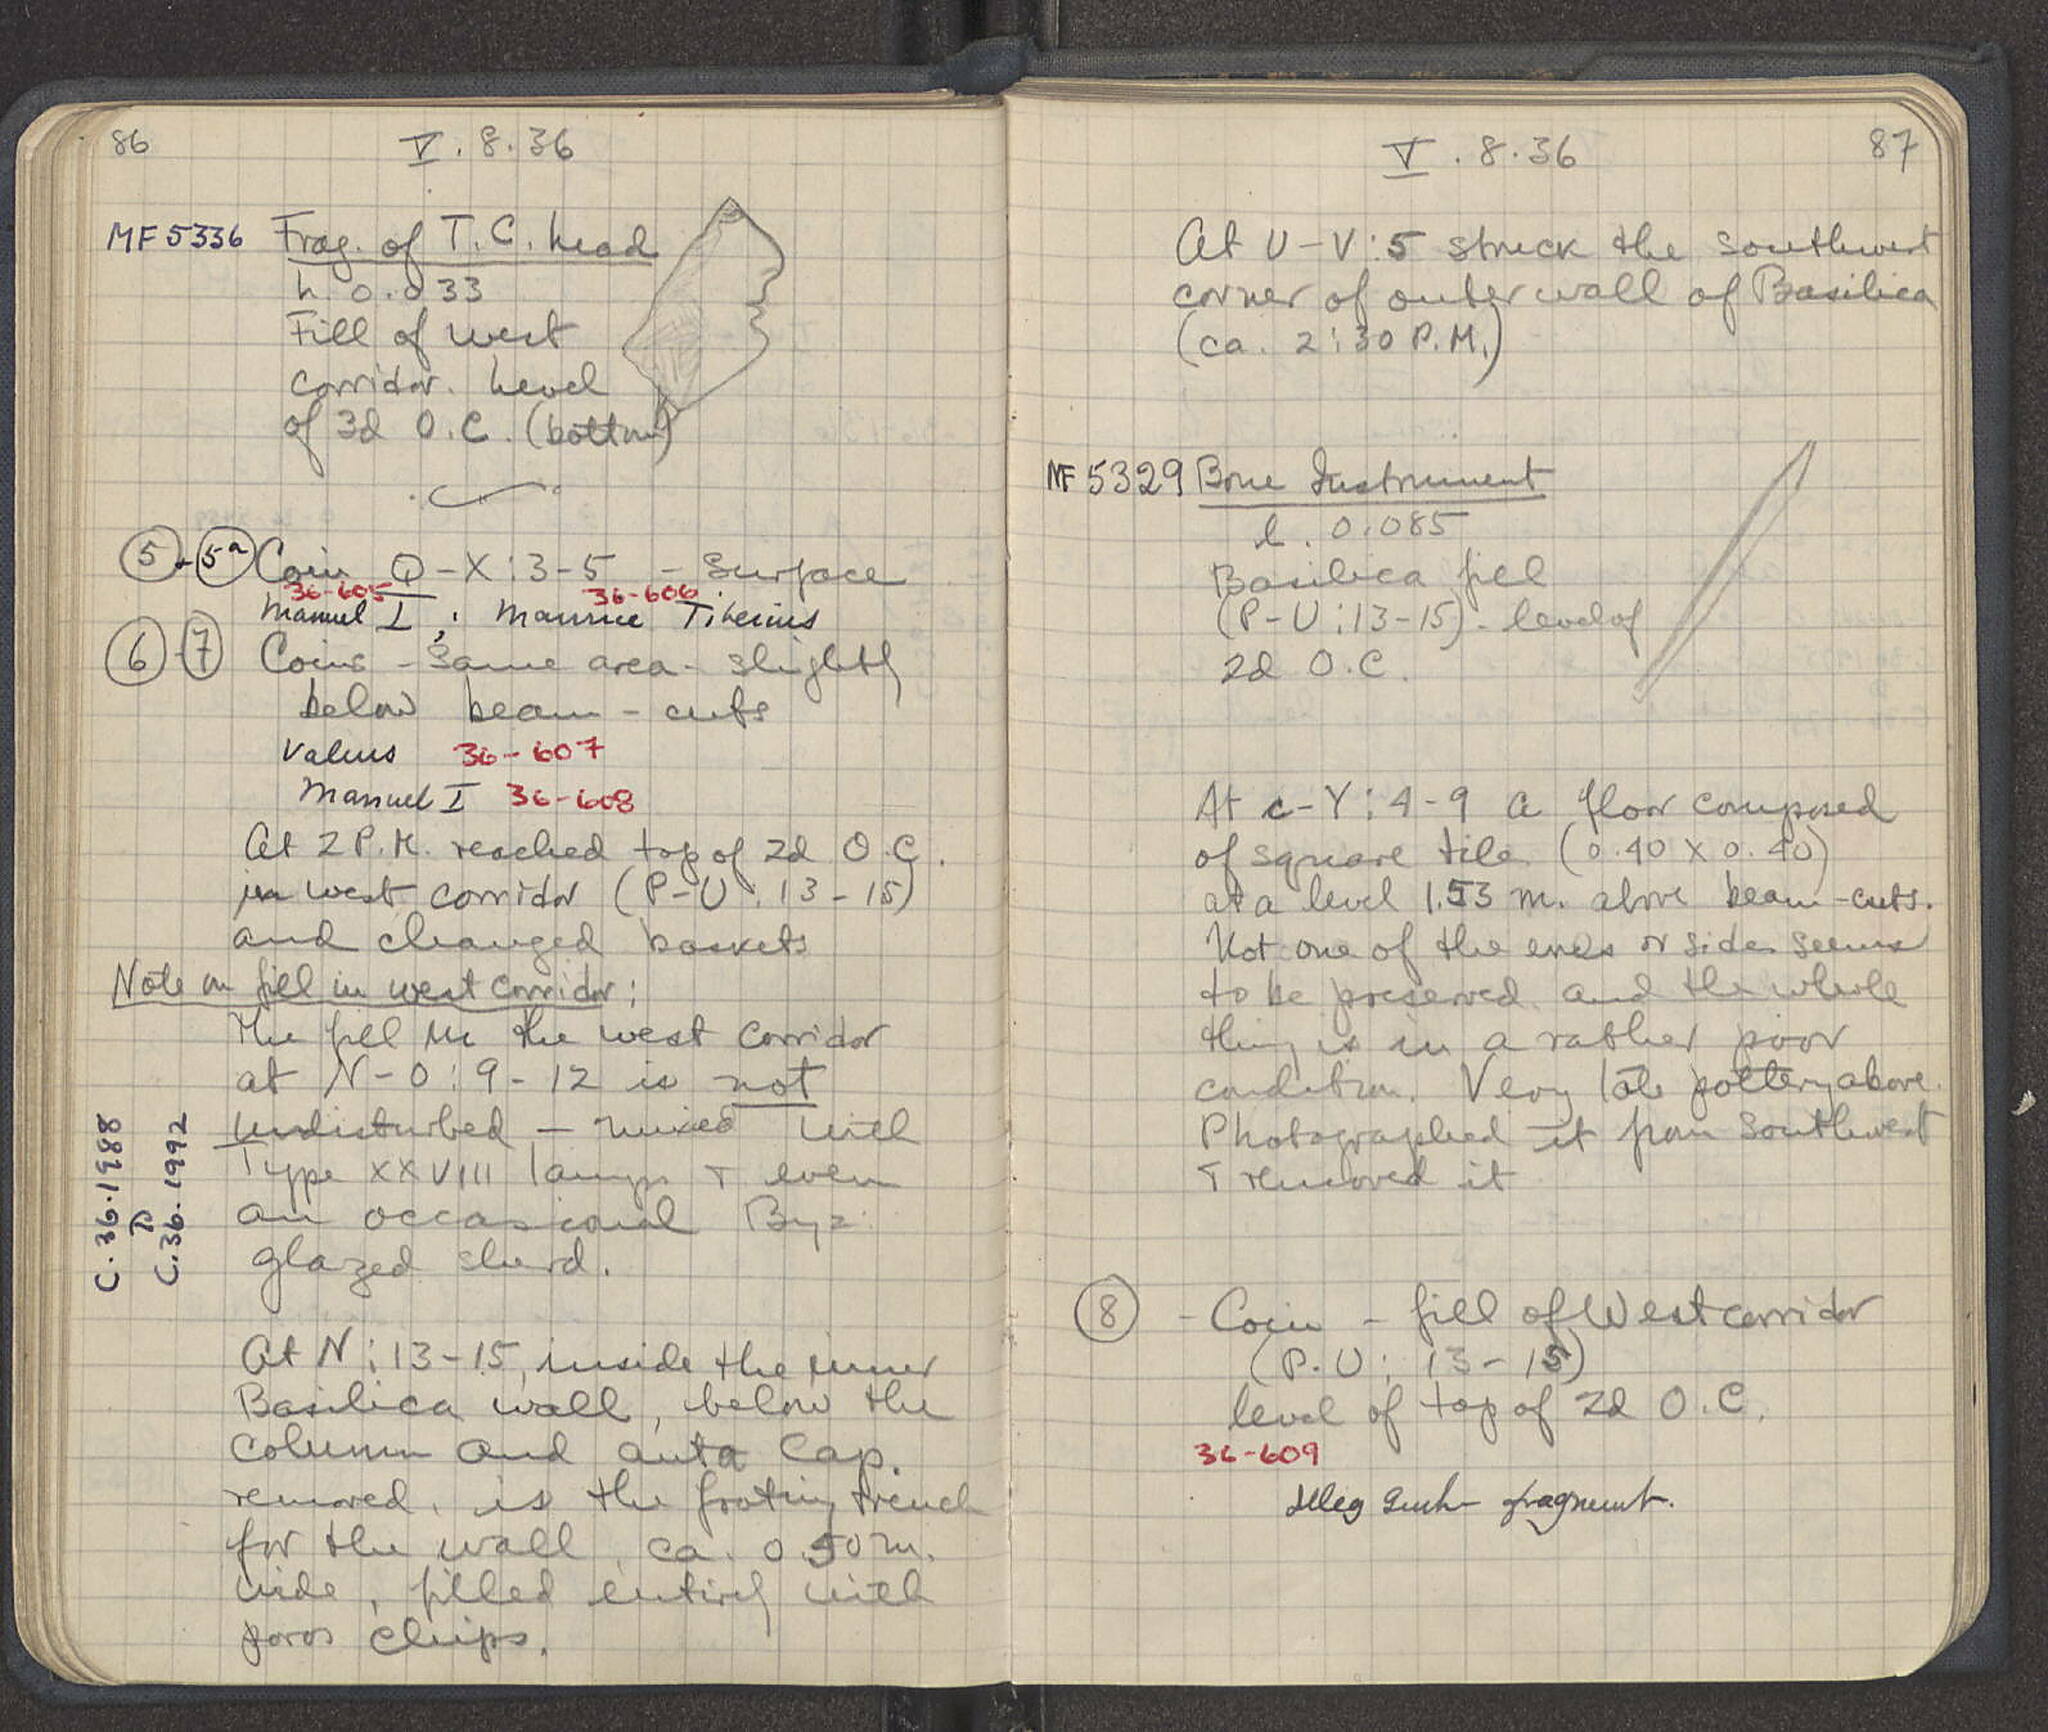 86
V. 8. 36
MF 5336 Frag. of T.C. head
h. 0.033
Fill of west
corridor. Level
of 3d O.C. (bottom)
5 + 5a Coin Q-X:3-5 - Surface
36-605 36-606
Manuel I ; Maurice Tiberius
6-7 Coins - Same area - slightly
below beam-cuts
Valens 36-607
Manuel I 36-608
At 2 P.M. reached top of 2d O.C.
in west corridor (P-U: 13-15)
and changed baskets
Note on fill in west corridor:
The fill in the west corridor
at N-O:9-12 is not
undisturbed - mixed with
Type XXVIII lamps + even
an occasional Byz.
glazed sherd.
C.36.1988
to
C.36.1992
At N:13-15, inside the inner
Basilica wall, below the
column and anta cap.
removed, is the footing trench
for the wall, ca. 0.50 m.
wide, filled entirely with
poros chips.
V. 8. 36
87
At U-V:5 struck the southwest
corner of outer wall of Basilica
(ca. 2:30 P.M.)
MF 5329 Bone Instrument
l. 0.085
Basilica fill
(P-U:13-15) - level of
2d O.C.
At c-Y:4-9 a floor composed
of square tile (0.40 X 0.40)
at a level 1.53 m. above beam-cuts.
Not one of the ends or sides seems
to be preserved and the whole
thing is in a rather poor
condition. Very late pottery above.
Photographed it from Southwest
+ removed it
8 - Coin - fill of West corridor
(P.U: 13-15)
level of top of 2d O.C.
36-609
Illeg fragment.